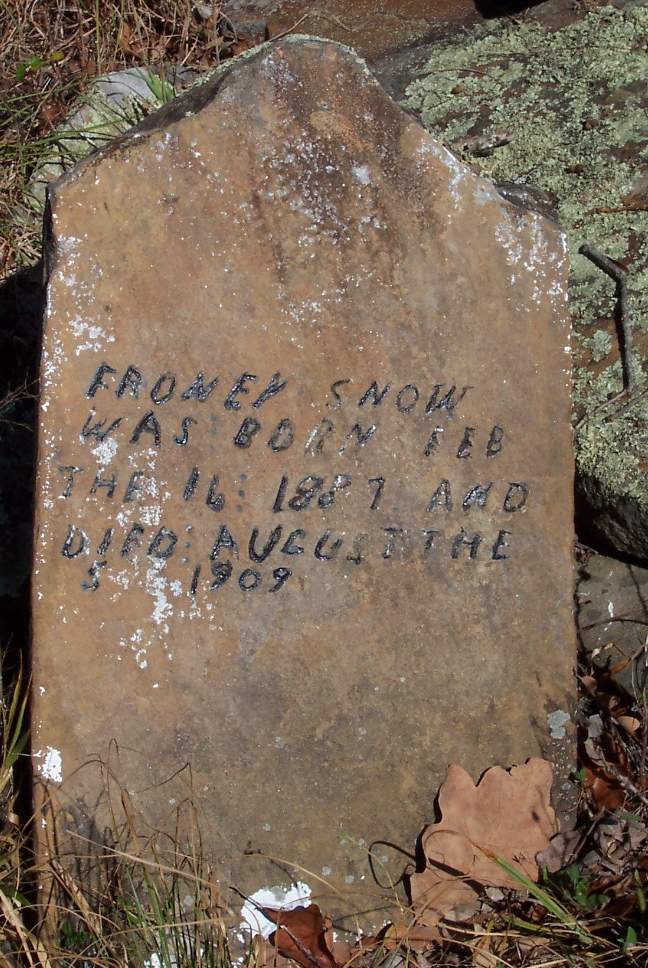 FRONEY SNOW
WAS BORN FEB
THE 16: 1887 AND
DIED: AUGUST THE
5 1909